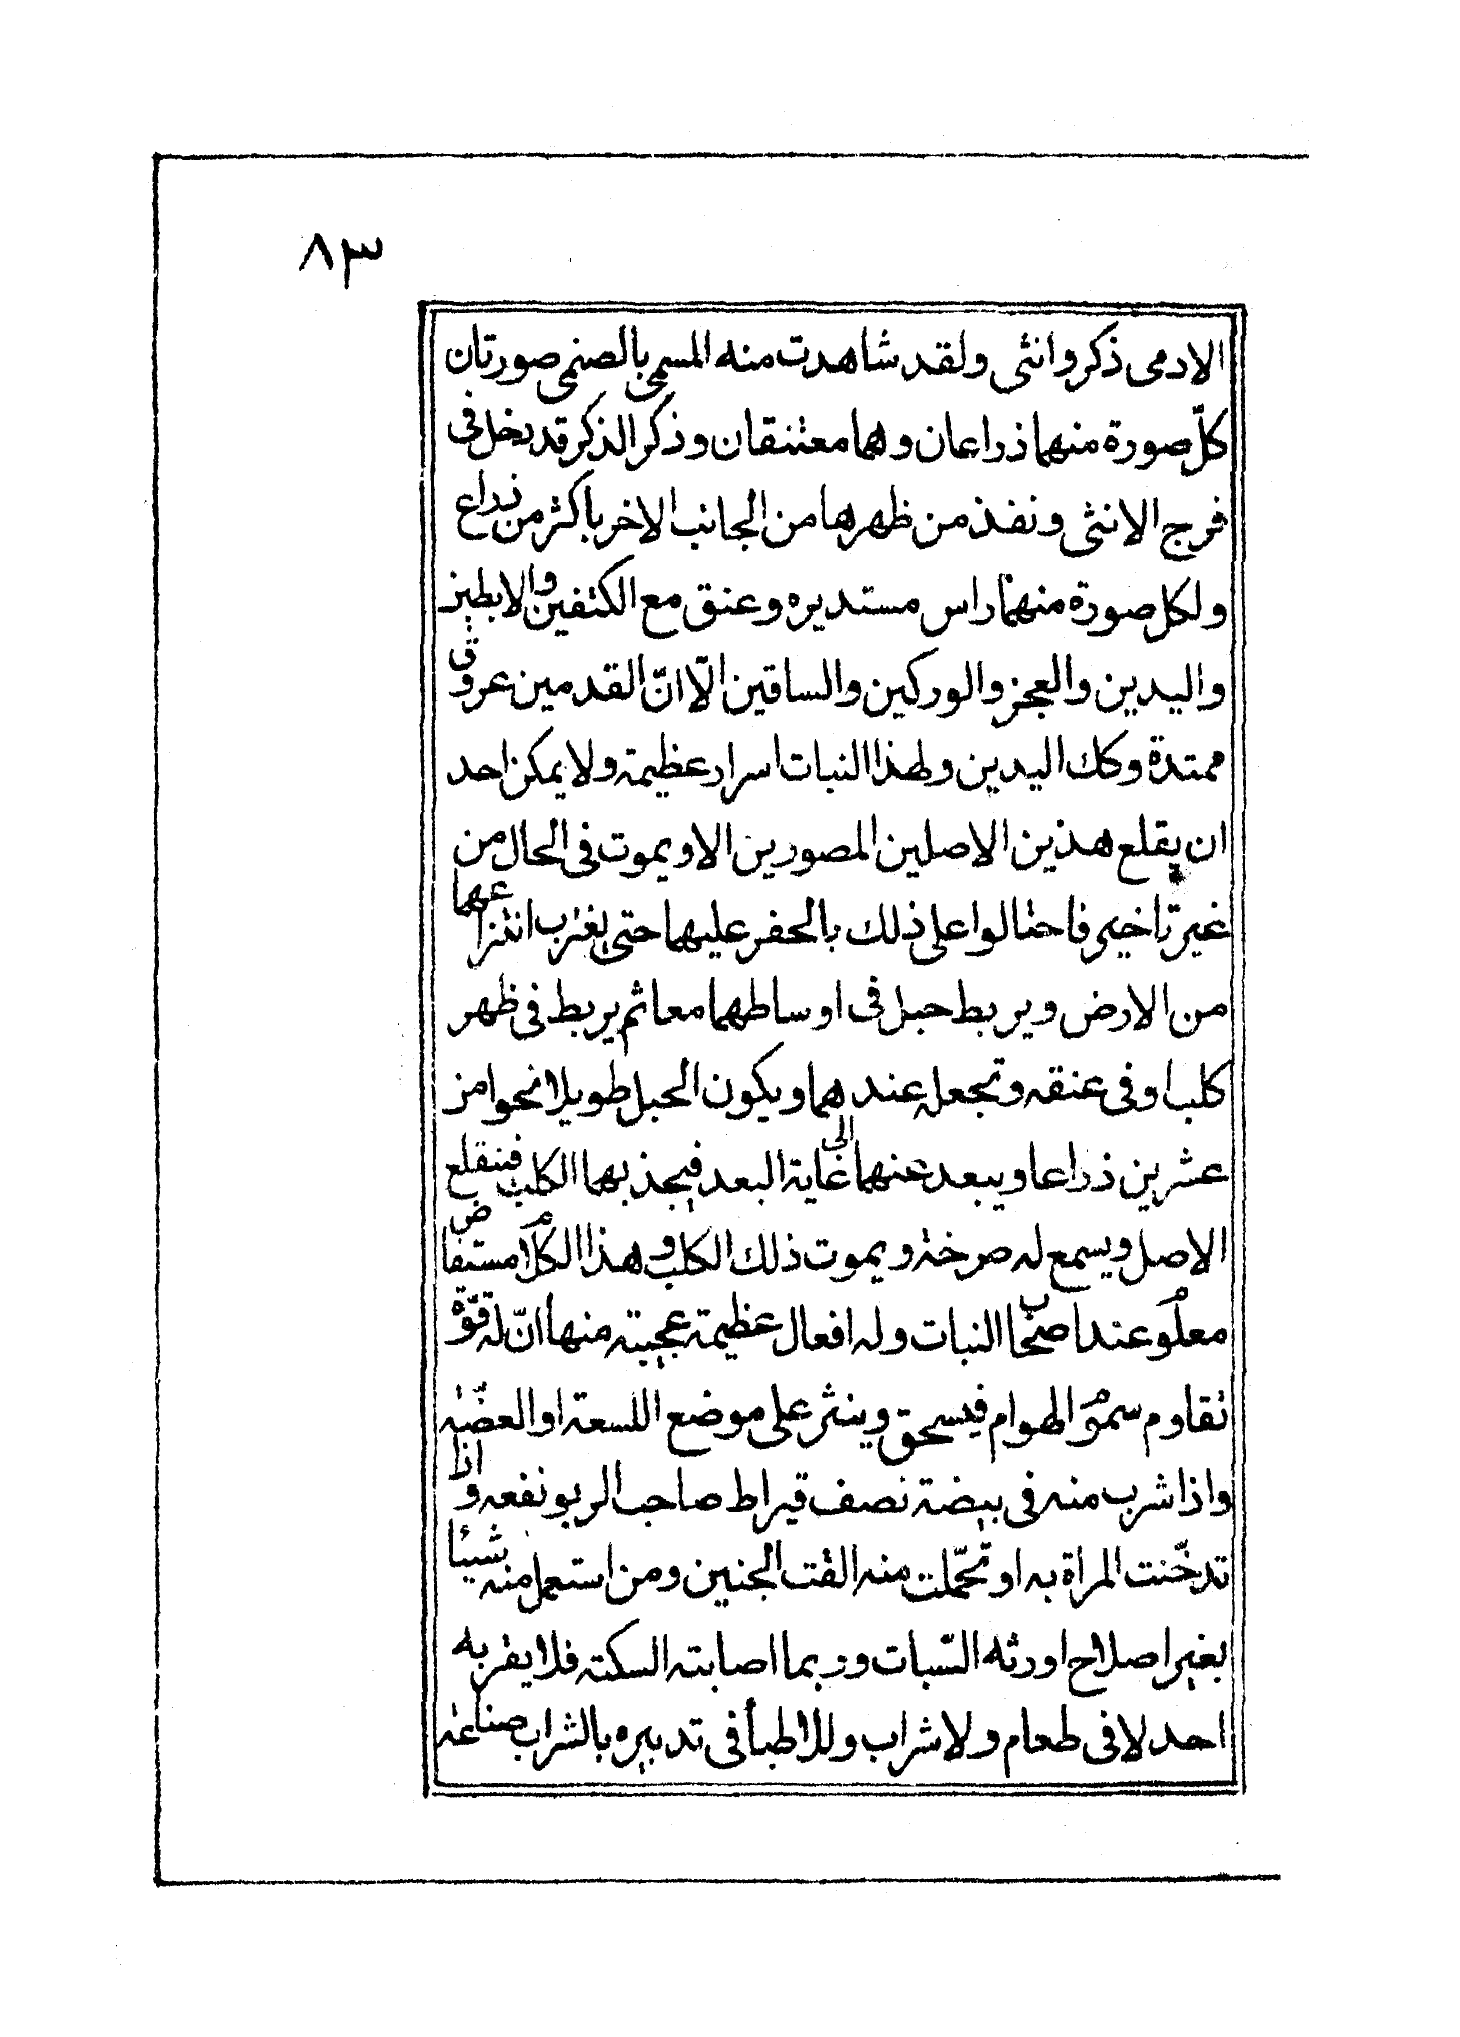 ٨٣
الادمى ذكر وانثى ولقد شاهدت منه المسمى بالصنمى صورتان
كلّ صورة منهما ذراعان وهما معتنقان وذكر الذكر قد دخل فى
فرج الانثى ونفذ من ظهرها من الجانب الاخر باكثر من ذراع
ولكل صورة منهما راس مستديره وعنق مع الكتفين والابطين
واليدين والعجز والوركين والساقين الّا انّ القدمين عروق
ممتدة وكك اليدين ولهذا النبات اسرار عظيمة ولا يمكن احد
ان يقلع هذين الاصلين المصورين الا ويموت فى الحال من
غير تاخير فاحتالوا على ذلك بالحفر عليهما حتى يقرب انتزاعهما
من الارض ويربط حبل فى اوساطهما معا ثم يربط فى ظهر
كلب او فى عنقه وتجعله عندهما ويكون الحبل طويلا نحوا من
عشرين ذراعا ويبعد عنهما الى غاية البعد فيجذبهما الكلب فينقلع
الاصل ويسمع له صرخة ويموت ذلك الكلب وهذا الكلام مستفاض
معلوم عند اصحاب النبات وله افعال عظيمة عجيبة منها انّ له قوّة
تقاوم سموم الهوام فيسحق وينثر على موضع اللسعة او العضّة
واذا شرب منه فى بيضة نصف قيراط صاحب الربو نفعه واذا
تدخّنت المراة به او تحمّلت منه القت الجنين ومن استعمل منه شيئا
بغير اصلاح اورثه السّبات وربما اصابته السكتة فلا يقربه
احد لا فى طعام ولا شراب وللاطبأ فى تدبيره بالشراب صناعة